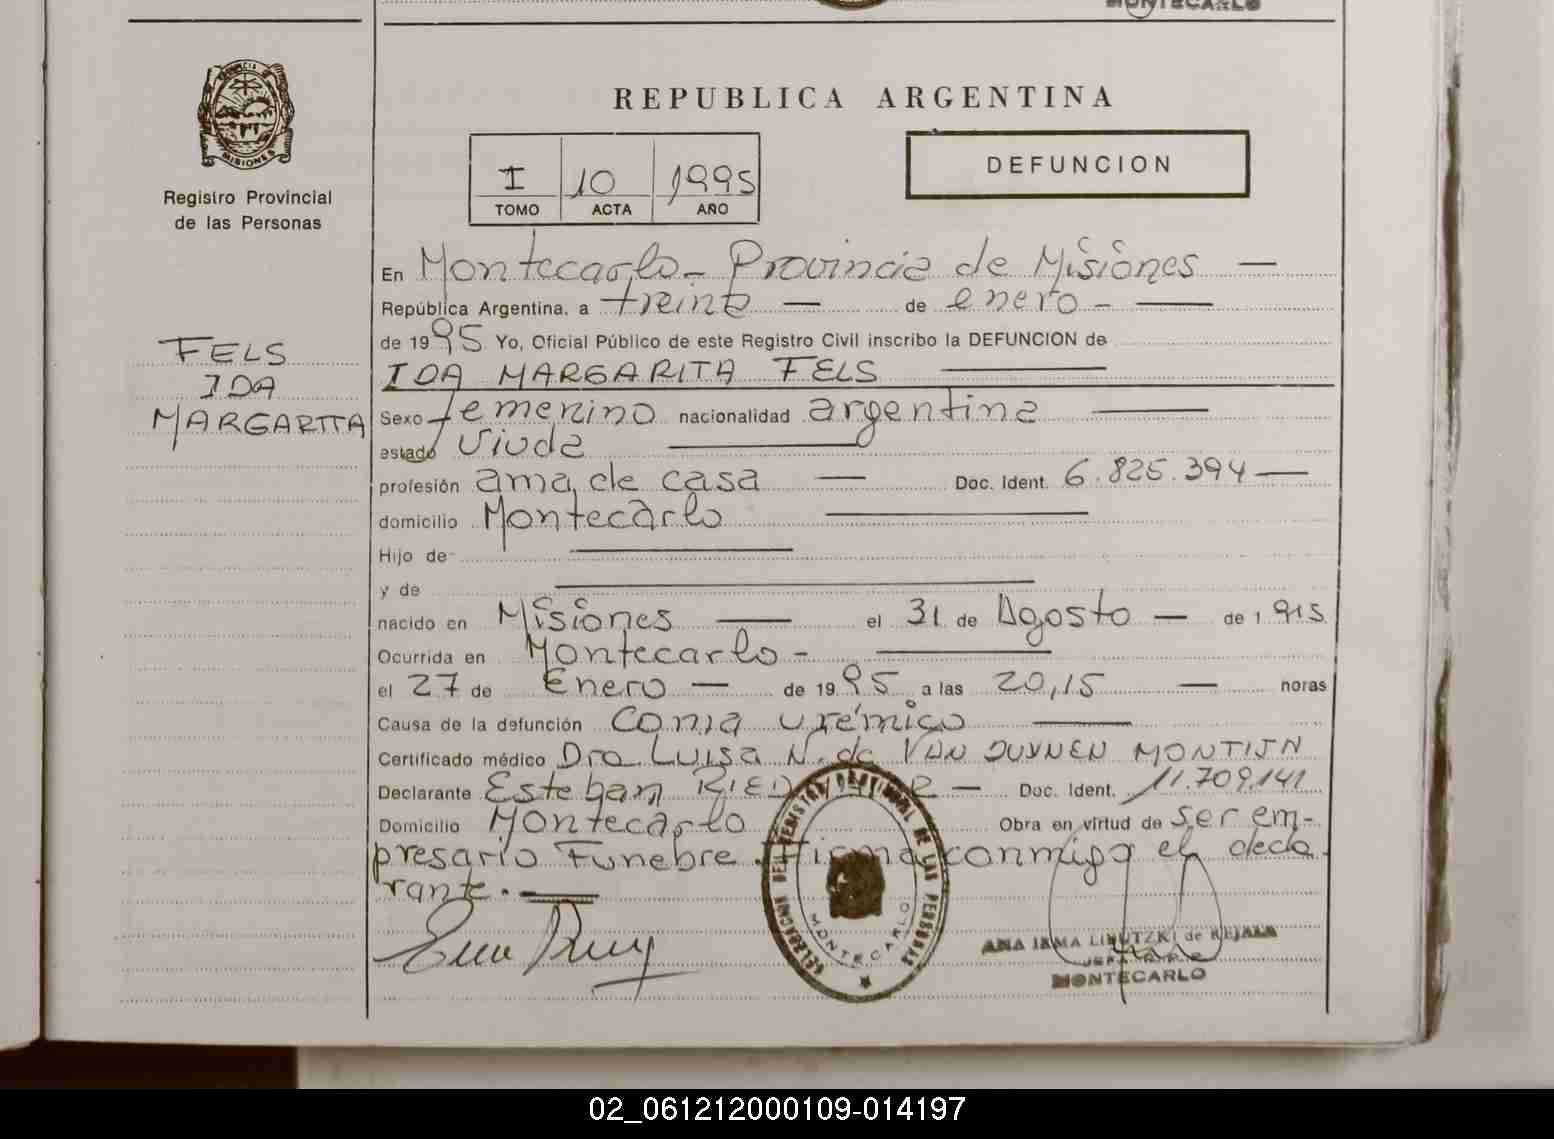 MONTECARLO
PROVINCIA DE
MISIONES
Registro Provincial
de las Personas
FELS
IDA
MARGARITA
REPUBLICA ARGENTINA
I 10 1995
TOMO ACTA AÑO
DEFUNCION
En Montecarlo - Provincia de Misiones —
República Argentina, a treinta — de enero - —
de 1995 Yo, Oficial Público de este Registro Civil inscribo la DEFUNCION de
IDA MARGARITA FELS —
Sexo femenino nacionalidad argentina —
estado viuda —
profesión ama de casa — Doc. Ident. 6.825.394 —
domicilio Montecarlo —
Hijo de —
y de —
nacido en Misiones — el 31 de Agosto — de 1915
Ocurrida en Montecarlo - —
el 27 de Enero — de 1995 a las 20,15 — horas
Causa de la defunción Coma urémico —
Certificado médico Dra. LUISA N. de VAN DUYNEN MONTIJN
Declarante Esteban — Doc. Ident. 11.709.141
Domicilio Montecarlo Obra en virtud de ser em-
presario Funebre. Firma conmigo el decla
rante. —
DELEGACION DEL REGISTRO PROVINCIAL DE LAS PERSONAS
MONTECARLO
ANA IRMA de REJALA
JEFA R.P.P.
MONTECARLO
02_061212000109-014197